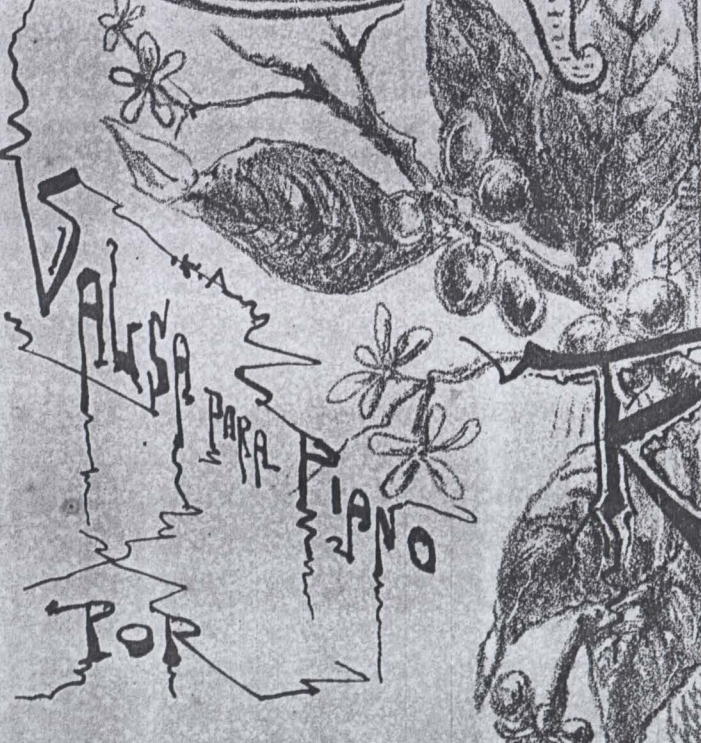 VALSA PARA PIANO
POR